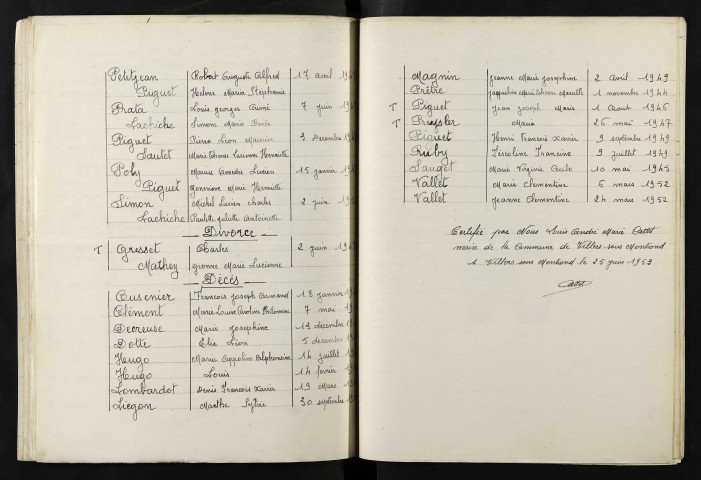 Petitjean Robert Auguste Alfred 17 avril 194
Piguet Helene Maria Stéphanie
Prata Louis georges Aimé 7 juin 19
Lachiche Simone Marie
Piguet Pierre Léon Maurice 3 Decembre 19
Sautet Marie Lucienne Henriette
Poly Maurice Amedée Lucien 15 janvier 19
Piguet Geneviève Marie Henriette
Simon Michel Lucien charles 2 juin 19
Lachiche Paulette juliette Antoinette
Divorce
T Gresset Charles 2 juin 19
Mathey yvonne Marie Lucienne
Décès
Cusenier Francois Joseph Armand 18 janvier 19
Clément Marie Louise Caroline Philomène 7 mai 19
Decreuse Marie josephine 13 décembre 19
Dotte Elie Léon 5 decembre 19
Hugo Maria Appoline Alphonsine 14 juillet 19
Hugo Louis 14 fevrier 19
Lombardot Denis Francois Xavier 19 Mars 19
Liegon Marthe Sylvie 30 septembre 19
Magnin jeanne Marie Josephine 2 avril 1949
Prêtre jacqueline Marie Marcelle 1 novembre 1944
T Piguet jean joseph Marie 1 Aout 1946
T Maria 26 mai 1947
Piguet Henri Francois Xavier 9 septembre 1949
Ruby Francine 9 juillet 1949
Sauget Marie Virginie Cecile 10 mai 1945
Vallet Marie Clementine 6 mars 1952
Vallet jeanne Clementine 24 mars 1952
Certifié par Nous Louis André Marie Cattet
maire de la Commune de Villers sous Montrond
A Villers sous Montrond le 25 juin 1953
Cattet